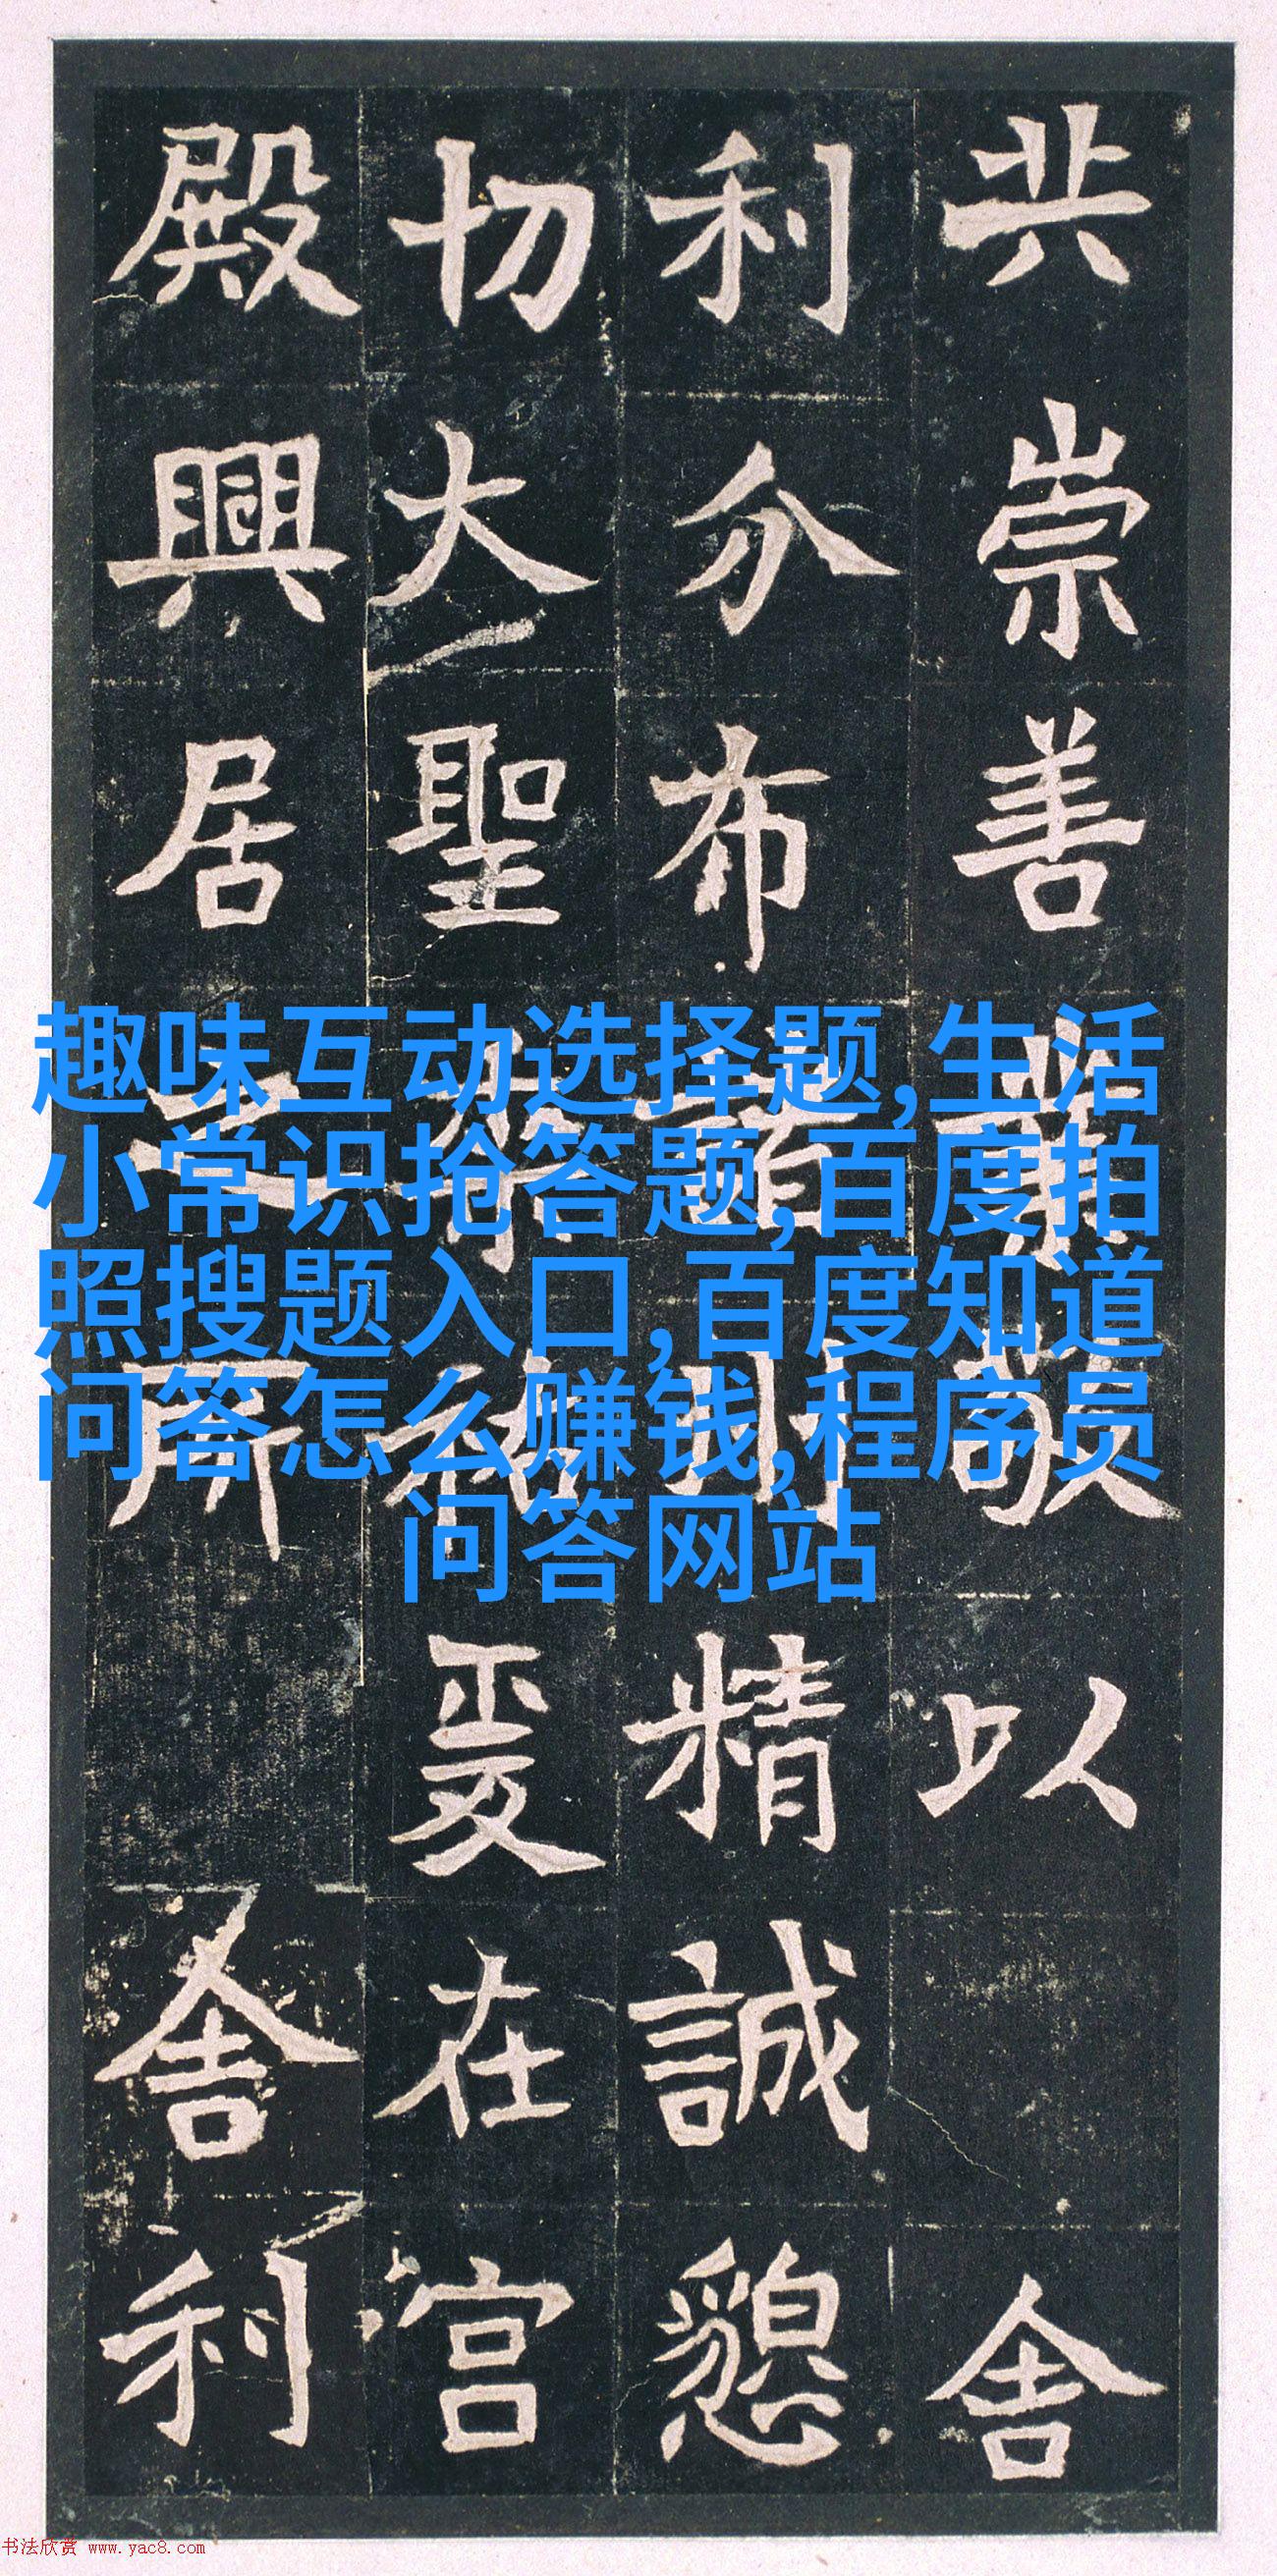 共崇善敬以舍
利分布諸州精誠懇
切大聖爰在宮
殿興居之所舍利
趣味互动选择题,生活
小常识抢答题,百度拍
照搜题入口,百度知道
问答怎么赚钱,程序员
问答网站
书法欣赏 www.yac8.com